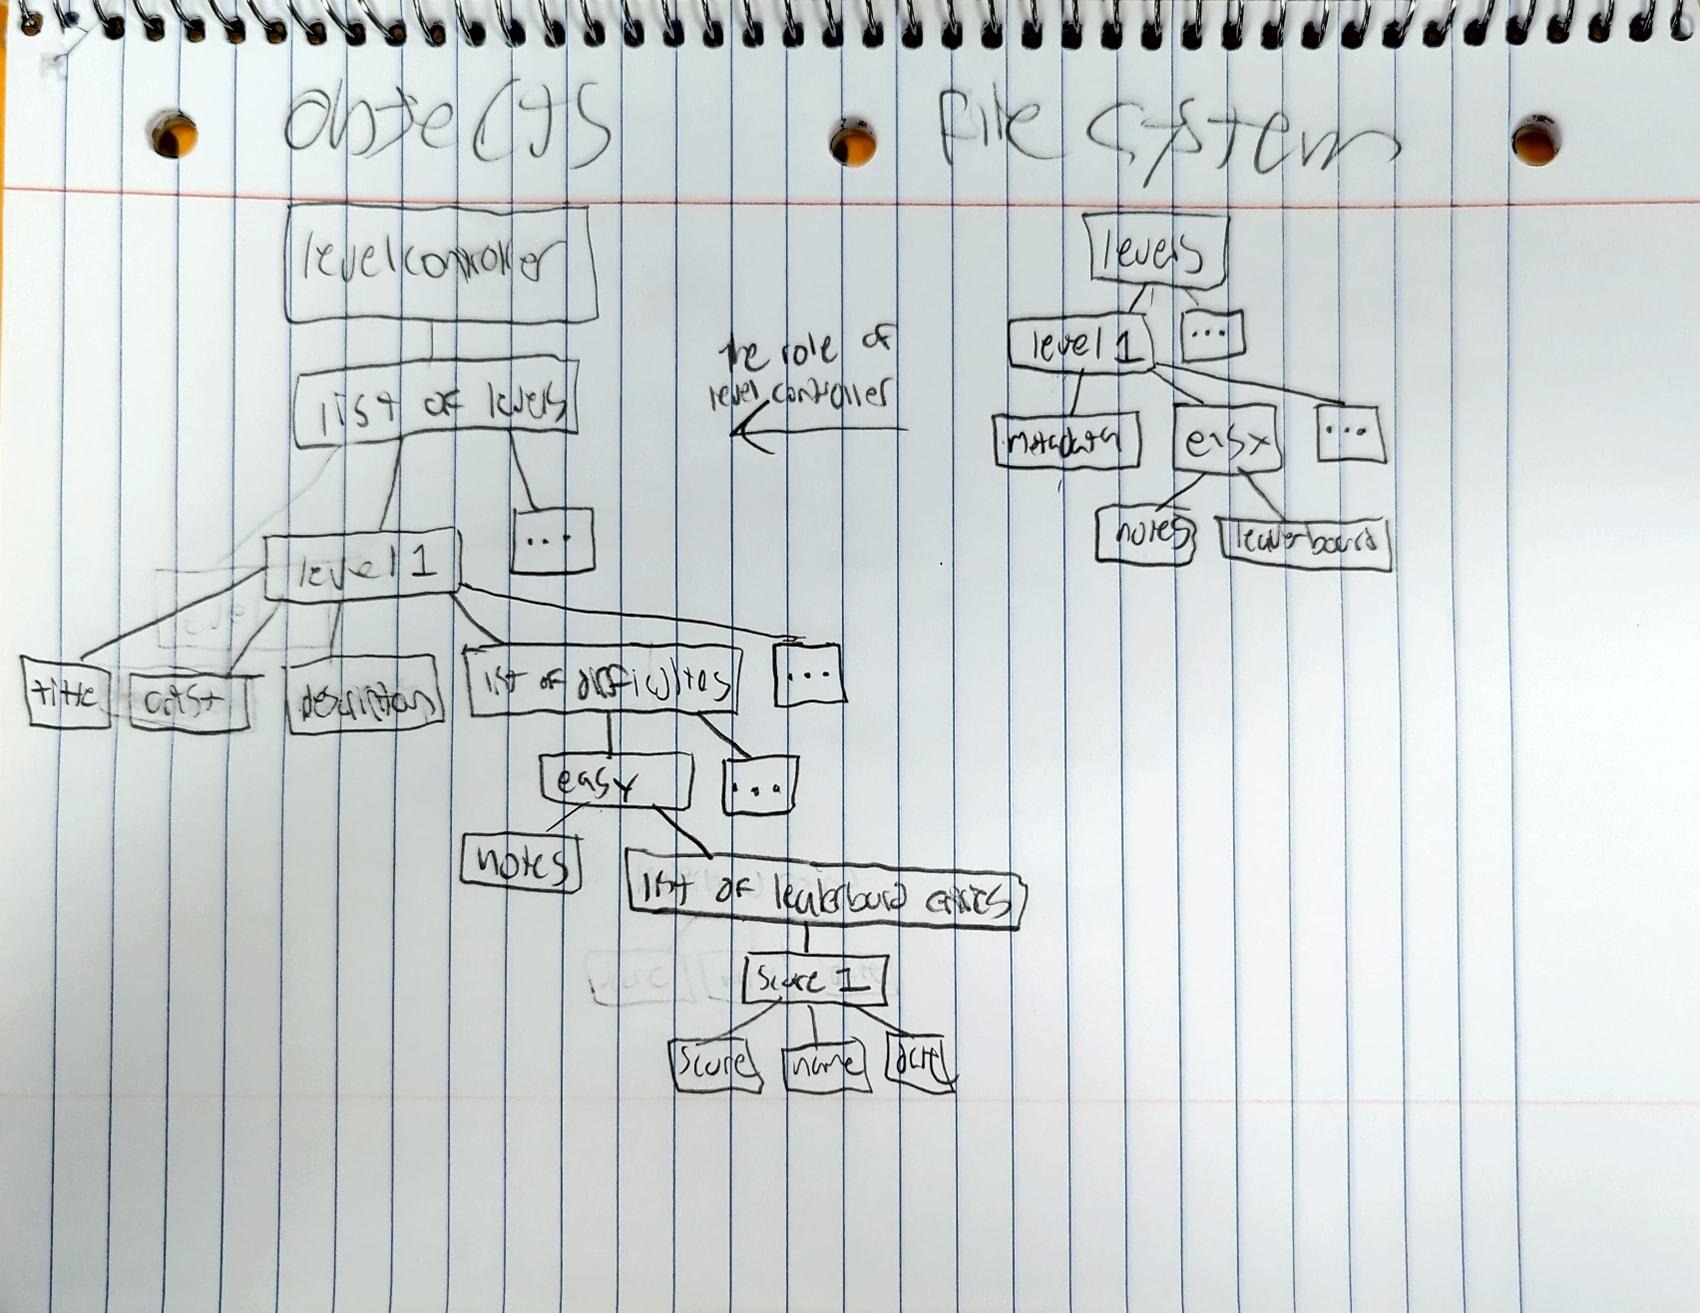 objects
file system
levelcontroller
list of levels
level 1
...
title
artist
description
list of difficulties
...
easy
...
notes
list of leaderboard entries
score 1
score
name
date
the role of
level controller
levels
level 1
...
metadata
easy
...
notes
leaderboard